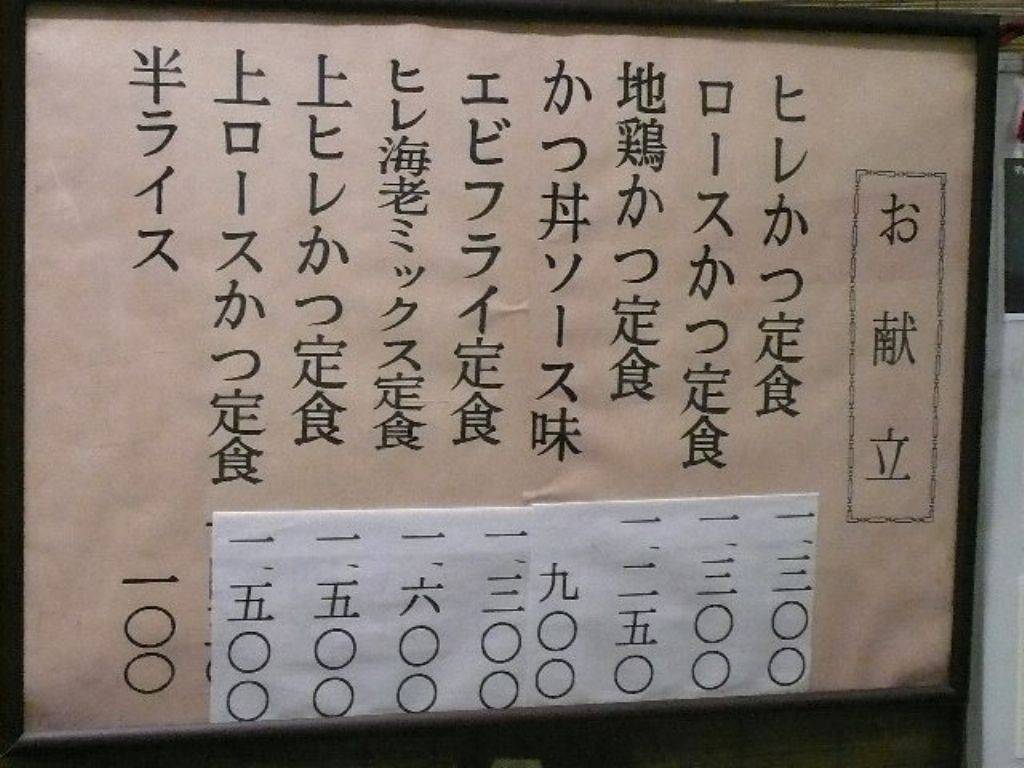 お献立
ヒレかつ定食 一、三〇〇
ロースかつ定食 一、三〇〇
地鶏かつ定食 一、二五〇
かつ丼ソース味 九〇〇
エビフライ定食 一、三〇〇
ヒレ海老ミックス定食 一、六〇〇
上ヒレかつ定食 一、五〇〇
上ロースかつ定食 一、五〇〇
半ライス 一〇〇